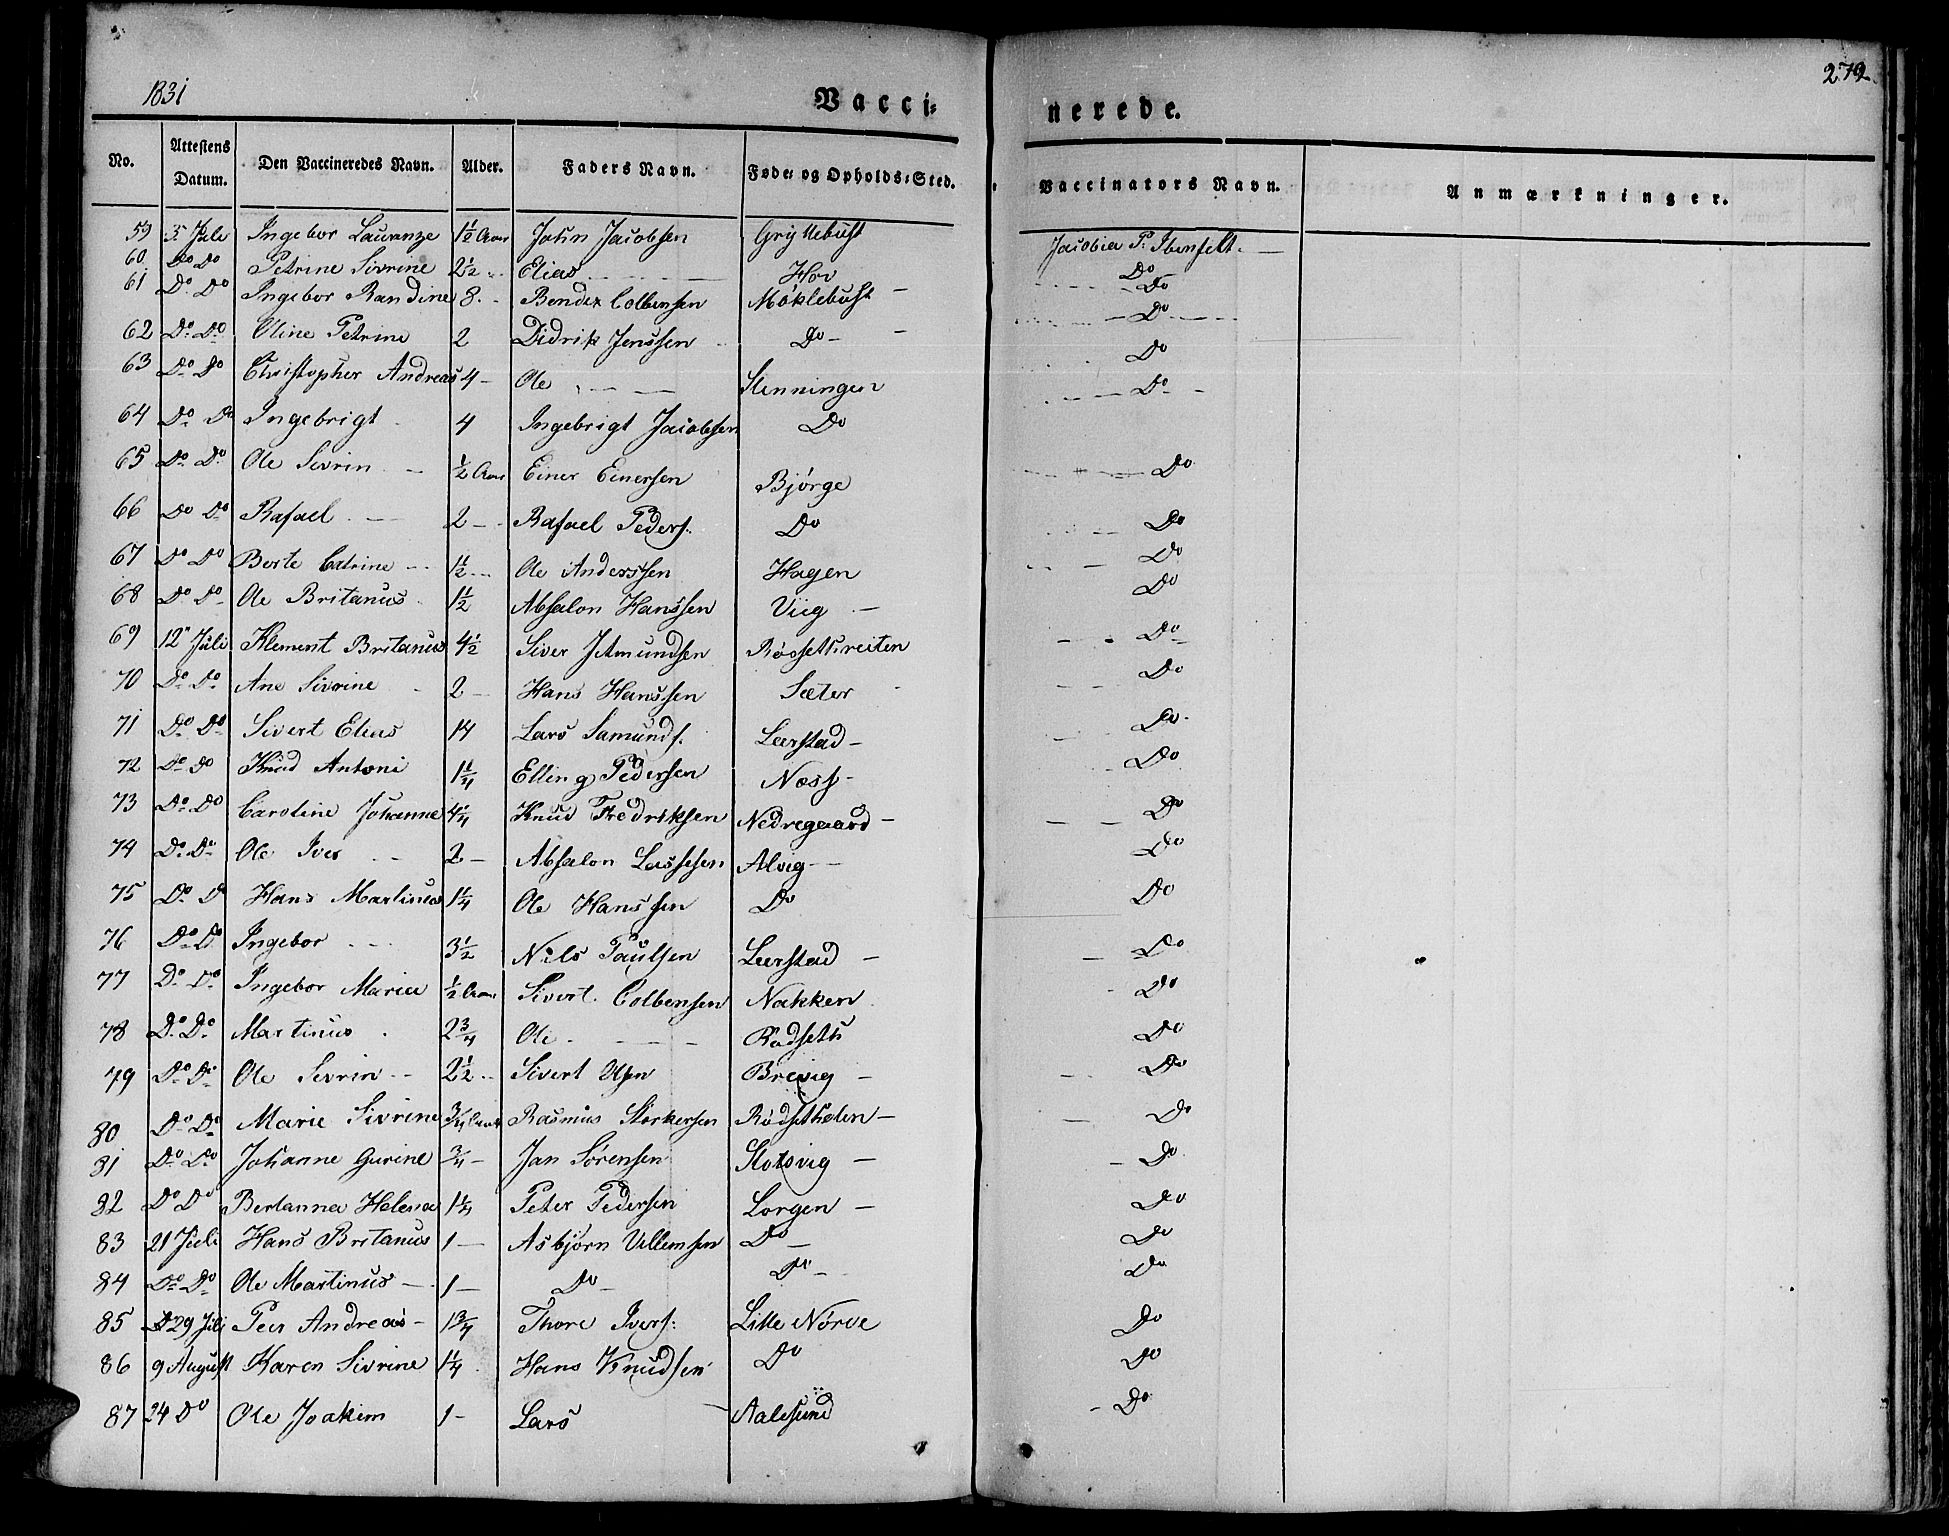 1831
Vacci-
nerede.
272.
No. Attestens Datum. Den Vaccineredes Navn. Alder. Faders Navn. Føde- og Opholds-Sted. Vaccinators Navn. Anmærkninger.
59 3 Juli Ingebor Lauranze 1½ Aar John Jacobsen Gryttebust Jacobia P. Ibenfelt.
60 Do Do Petrine Sivrine 2½ Elias Hov Do
61 Do Do Ingebor Randine 8 Bendix Colbensen Møklebust Do
62 Do Do Oline Petrine 2 Didrik Jenssen Do Do
63 Do Do Christopher Andreas 4 Ole Stenningen Do
64 Do Do Ingebrigt 4 Ingebrigt Jacobsen Do Do
65 Do Do Ole Sivrin ½ Aar Einer Einersen Bjørge Do
66 Do Do Rafael 2 Rafael Peders: Do Do
67 Do Do Berte Catrine 1½ Ole Anderssen Hagen Do
68 Do Do Ole Britanus 1½ Absalon Hanssen Viig Do
69 12 Juli Klement Britanus 4½ Siver Jtmundsen Røssetsreiten Do
70 Do Do Ane Sivrine 2 Hans Hanssen Sæter Do
71 Do Do Sivert Elias 14 Lars Samunds. Leerstad Do
72 Do Do Knud Antoni 1¼ Elling Pedersen Næss Do
73 Do Do Caroline Johanne 4¼ Knud Fredriksen Nedregaard Do
74 Do Do Ole Iver 2 Absalon Lassesen Alvig Do
75 Do Do Hans Martinus 1¼ Ole Hanssen Do Do
76 Do Do Ingebor 3½ Nils Paulsen Leerstad Do
77 Do Do Ingebor Maria ½ Aar Sivert Colbensen Nakken Do
78 Do Do Martinus 2¾ Ole Rødseth Do
79 Do Do Ole Sevrin 2½ Sivert Olsen Brevig Do
80 Do Do Marie Sivrine ¾ Aar Rasmus Storkersen Rødsetholen Do
81 Do Do Johanne Gurine ¾ Jan Sørensen Slotsvig Do
82 Do Do Bertanna Helena 1¼ Peter Pedersen Lorgen Do
83 21 Juli Hans Britanus 1 Asbjørn Villemsen Do Do
84 Do Do Ole Martinus 1 Do Do Do
85 29 Juli Peer Andreas 1¾ Thore Ivers: Lille Nørve Do
86 9 August Karen Sivrine 1¼ Hans Knudsen Do Do
87 24 Do Ole Joakim 1 Lars Aalesund Do